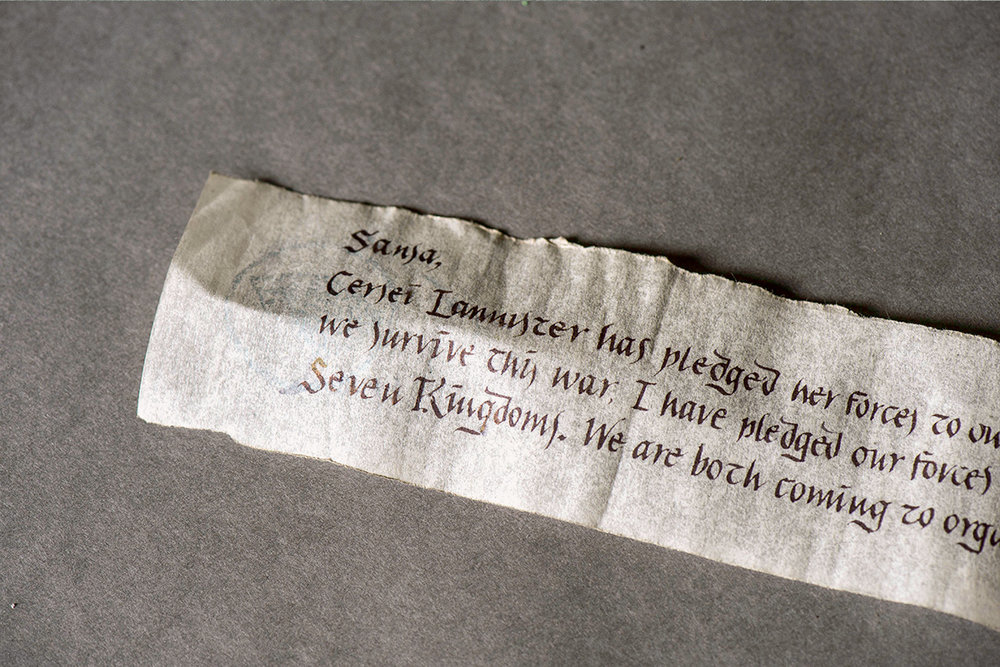 Sansa,
Cersei Lannister has pledged her forces to ou
we survive this war, I have pledged our forces
Seven Kingdoms. We are both coming to orga